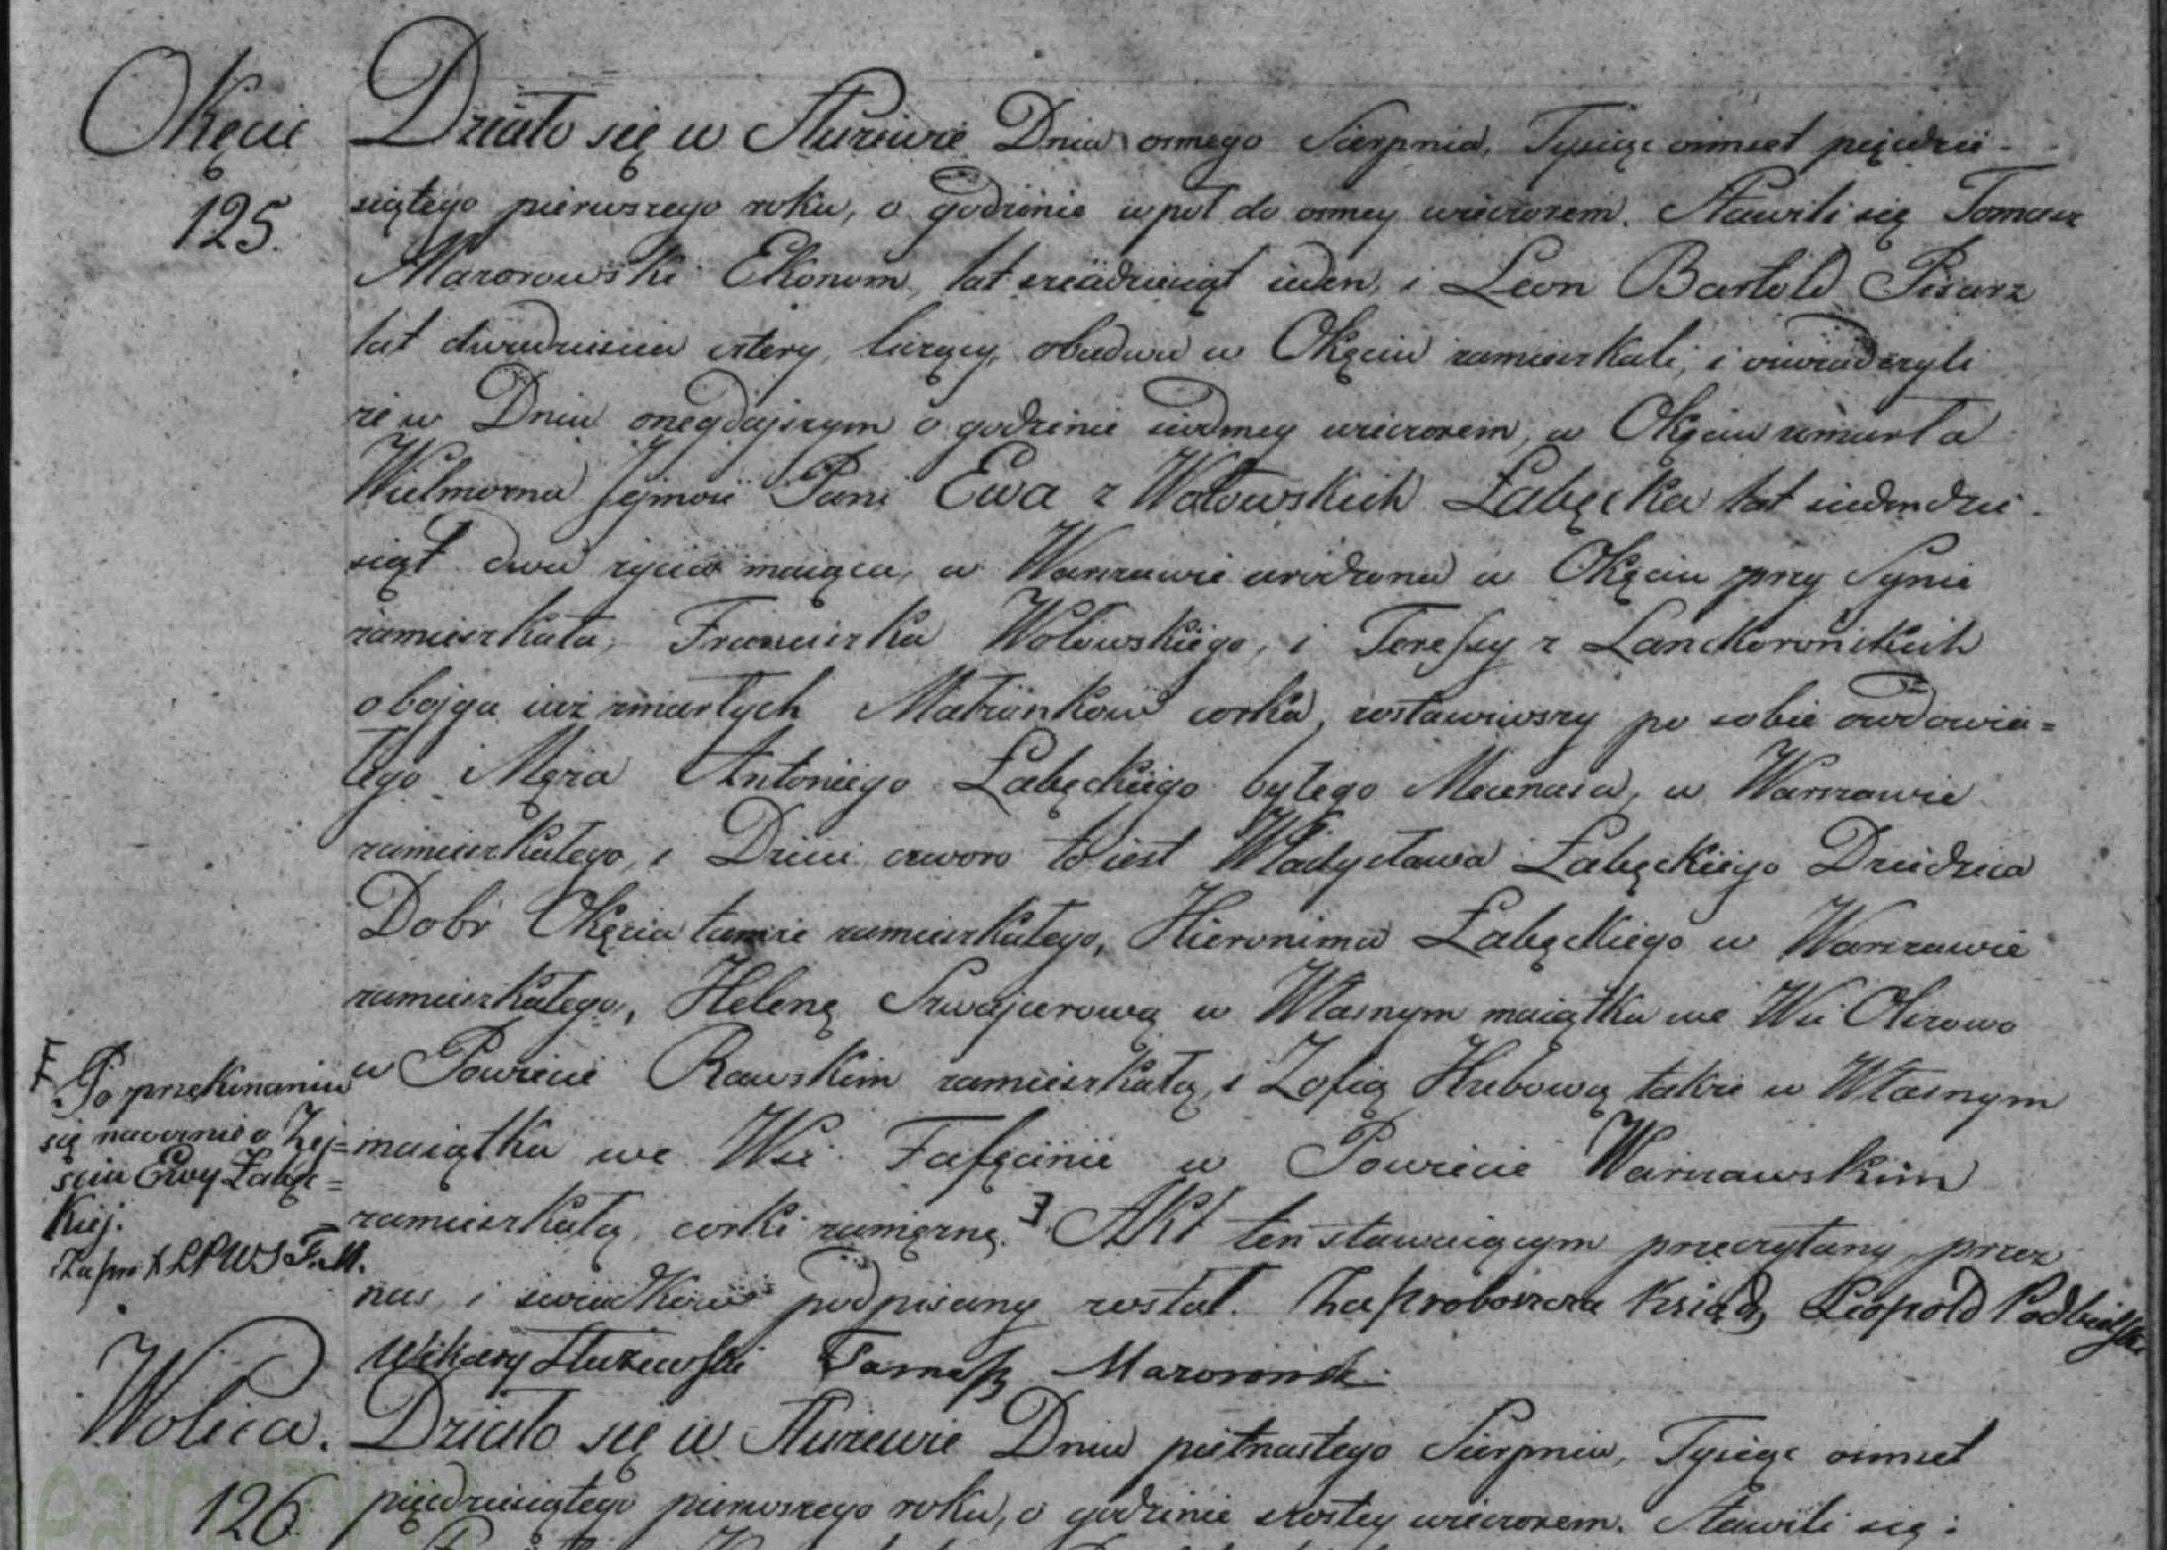 Okęcie
125.
Działo się w Służewie Dnia osmego Sierpnia, Tysiąc ośmset pięćdzie-
siątego pierwszego roku, o godzinie wpół do osmey wieczorem. Stawili się Tomasz
Mazorowski Ekonom, lat sześćdziesiąt ieden, i Leon Bartold Pisarz
lat dwadzieścia cztery liczący, obadwa w Okęciu zamieszkali, i oświadczyli
że w Dniu onegdajszym o godzinie siódmey wieczorem, w Okęciu umarła
Wielmożna Jejmość Pani Ewa z Wołowskich Łabęcka lat siedmdzie-
siąt dwa życia maiąca, w Warszawie urodzona w Okęciu przy Synie
zamieszkała, Franciszka Wołowskiego, i Teressy z Lanckorońskich
obojga iuż zmarłych Małżonków corka, zostawiwszy po sobie owdowia=
łego Męża Antoniego Łabęckiego byłego Mecenasa, w Warszawie
zamieszkałego, i Dzieci czworo to iest Władysława Łabęckiego Dziedzica
Dobr Okęcia tamże zamieszkałego, Hieronima Łabęckiego w Warszawie
zamieszkałego, Helenę Szwajcerową w Własnym maiątku we Wsi Olszowo
w Powiecie Rawskim zamieszkałą, i Zofią Hubową także w Własnym
maiątku we Wsi Falęcinie w Powiecie Warszawskim
zamieszkałą, corki zamężne. Akt ten stawaiącym przeczytany, przez
nas, i świadków podpisany został. Za proboszcza Ksiądz Leopold Podbielski
Wikary Służewski Tomasz Mazorowski
F Po przekonaniu
się naocznie o Zej=
ściu Ewy Łabęc=
kiej.
Za pro X LPWS T.M.
Wolica.
126
Działo się w Służewie Dnia piętnastego Sierpnia, Tysiąc ośmset
pięćdziesiątego pierwszego roku, o godzinie szostey wieczorem. Stawili się: